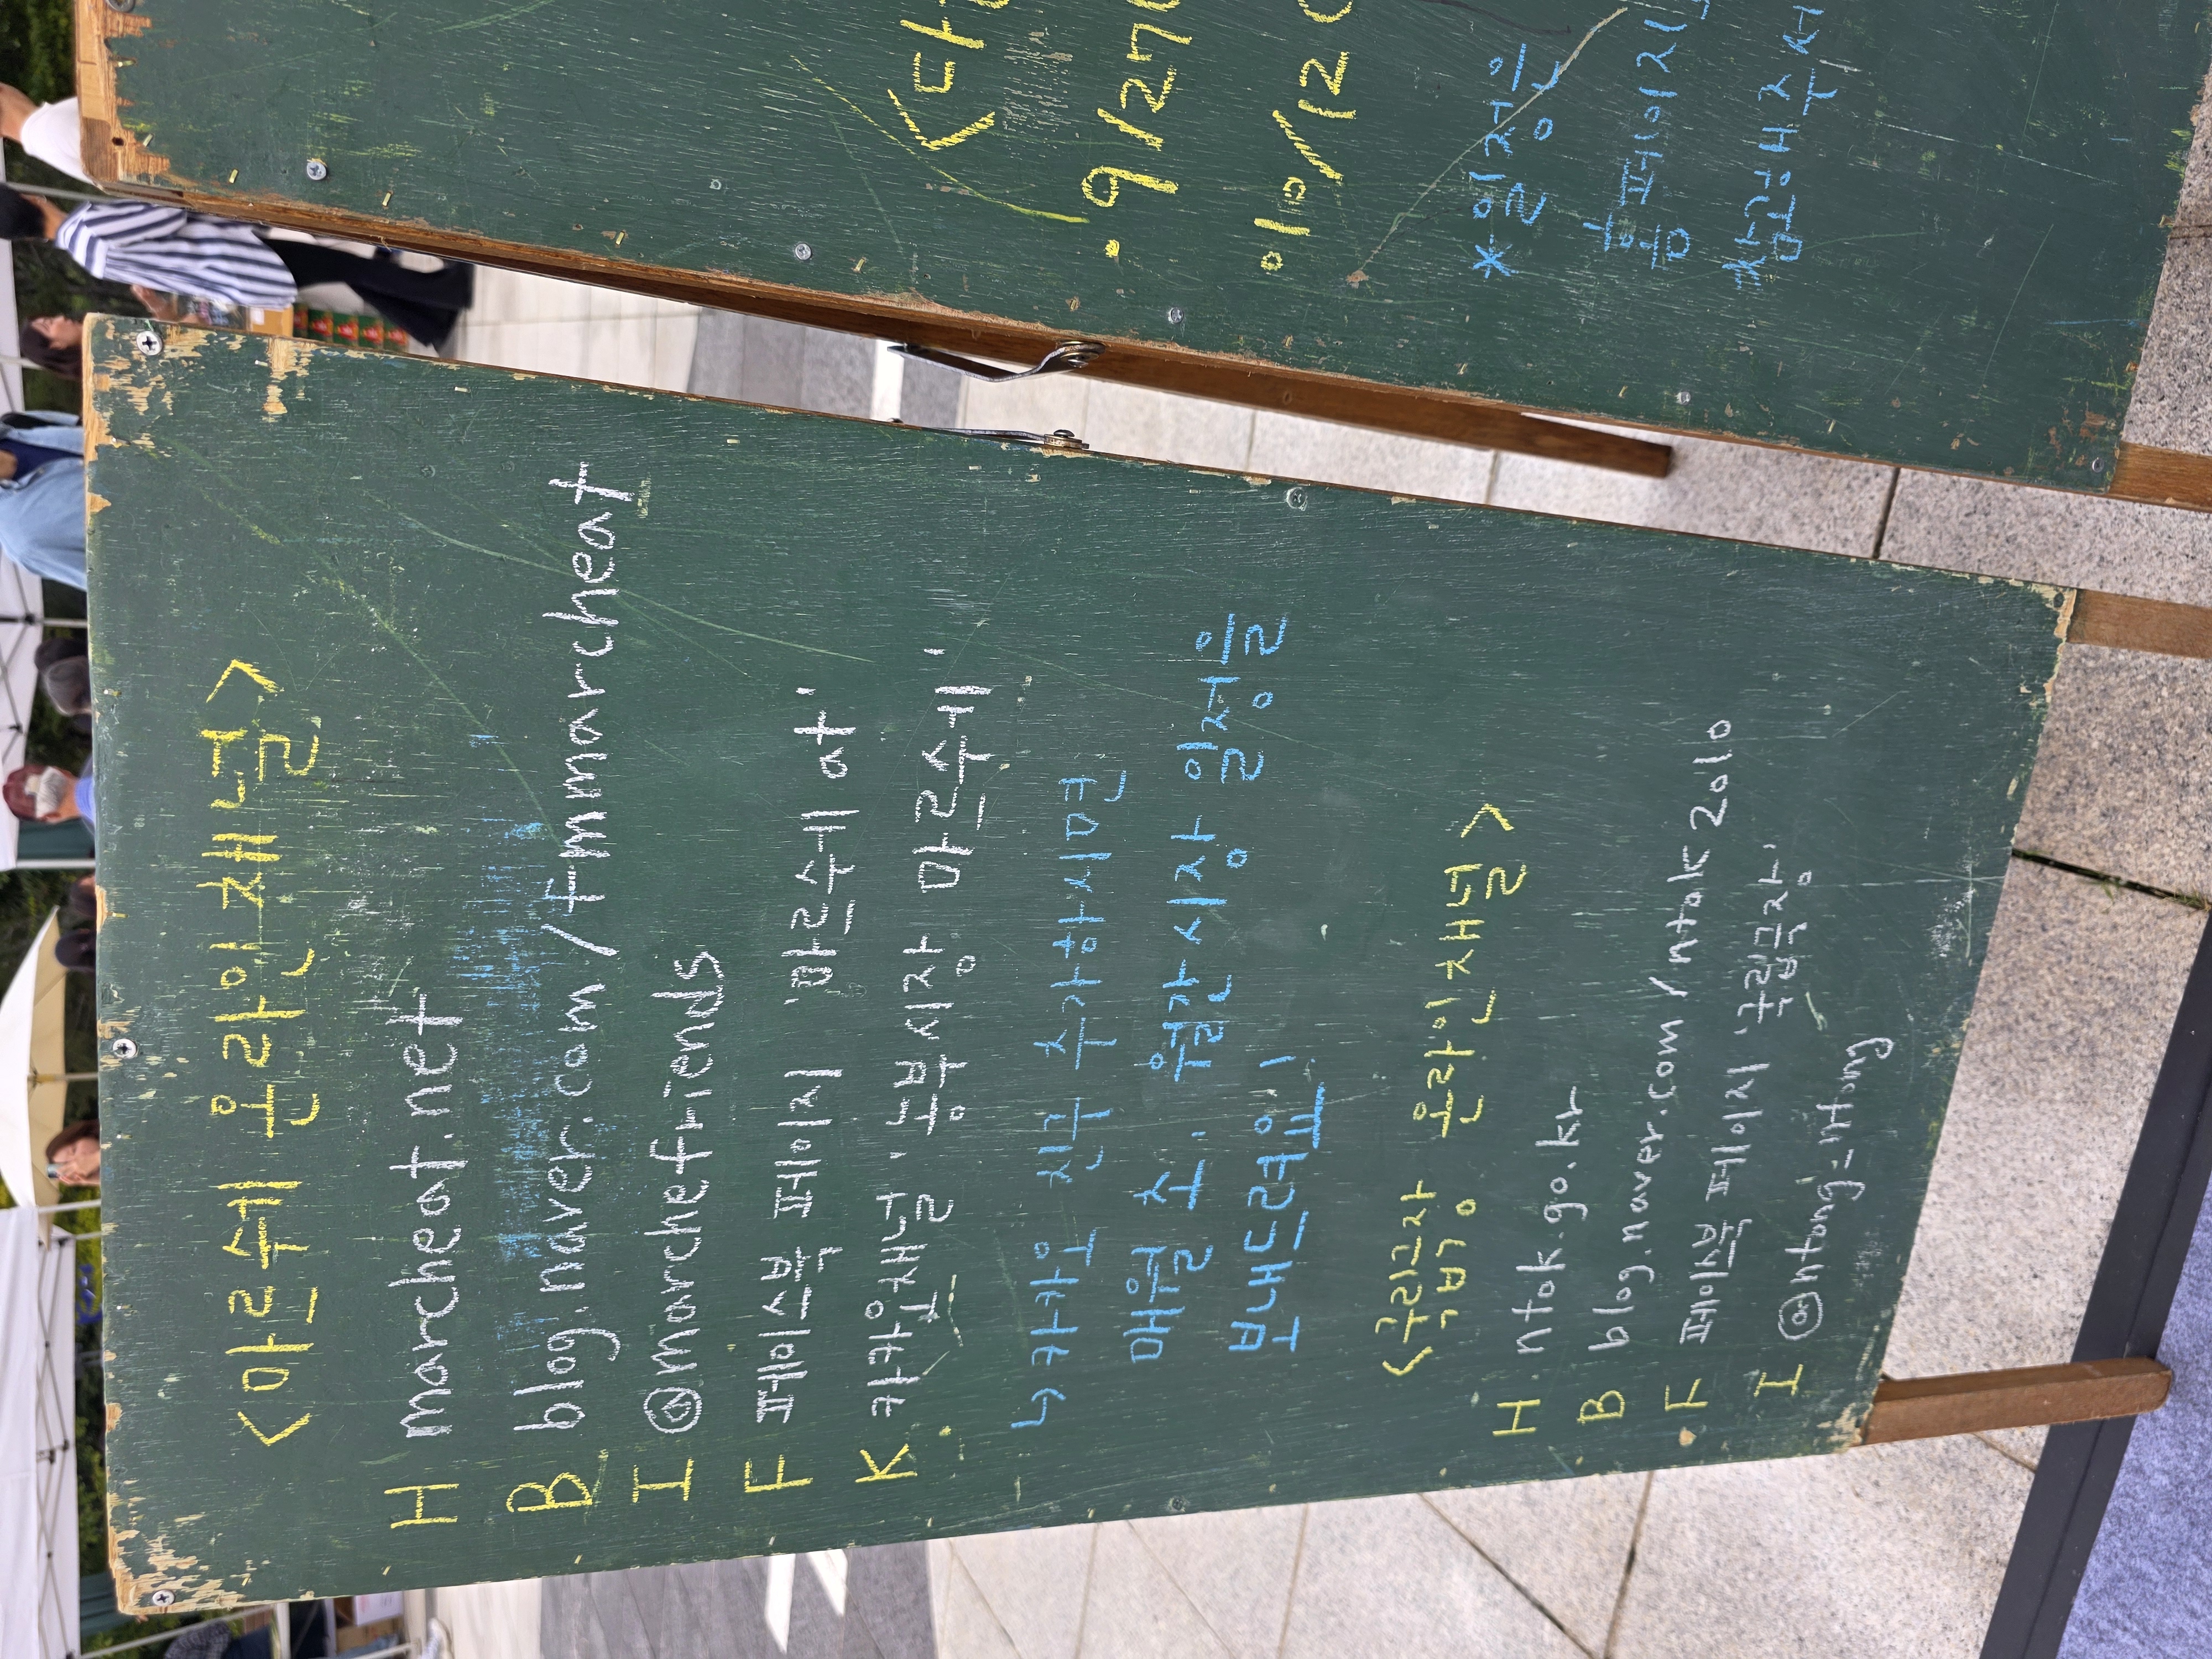 <마르쉐 온라인 채널>
H marcheat.net
B blog.naver.com/fmmarcheat
I @marchefriends
F 페이스북 페이지 '마르쉐 at'
K. 카카오채널 '농부시장 마르쉐'
↳ 카카오 친구 추가하시면
매월 초, 월간 시장 일정을
보내드려요!
<국립극장 온라인 채널>
H. ntok.go.kr
B blog.naver.com/ntok2010
F 페이스북 페이지 '국립극장'
I @ntong_ntong
• 9/27
10/12
* 일정은